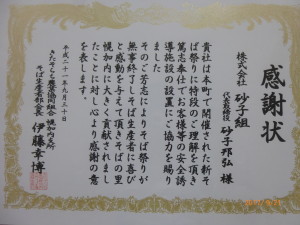 感謝状
株式会社 砂子組
代表取締役 砂子邦弘 様
貴社は本町で開催された新そ
ば祭りに特段のご理解を頂き
篤志奉仕でお客様等の安全誘
導施設の設置にご協力を賜り
ました
そのご芳志によりそば祭りが
無事終了しそば生産者に喜び
と感動を与えて頂きそばの里
幌加内に大きく貢献されまし
たことに対し心より感謝の意
を表します。
平成二十一年九月三十日
きたそらち農業協同組合 幌加内支所
そば生産者部会長 伊藤幸博